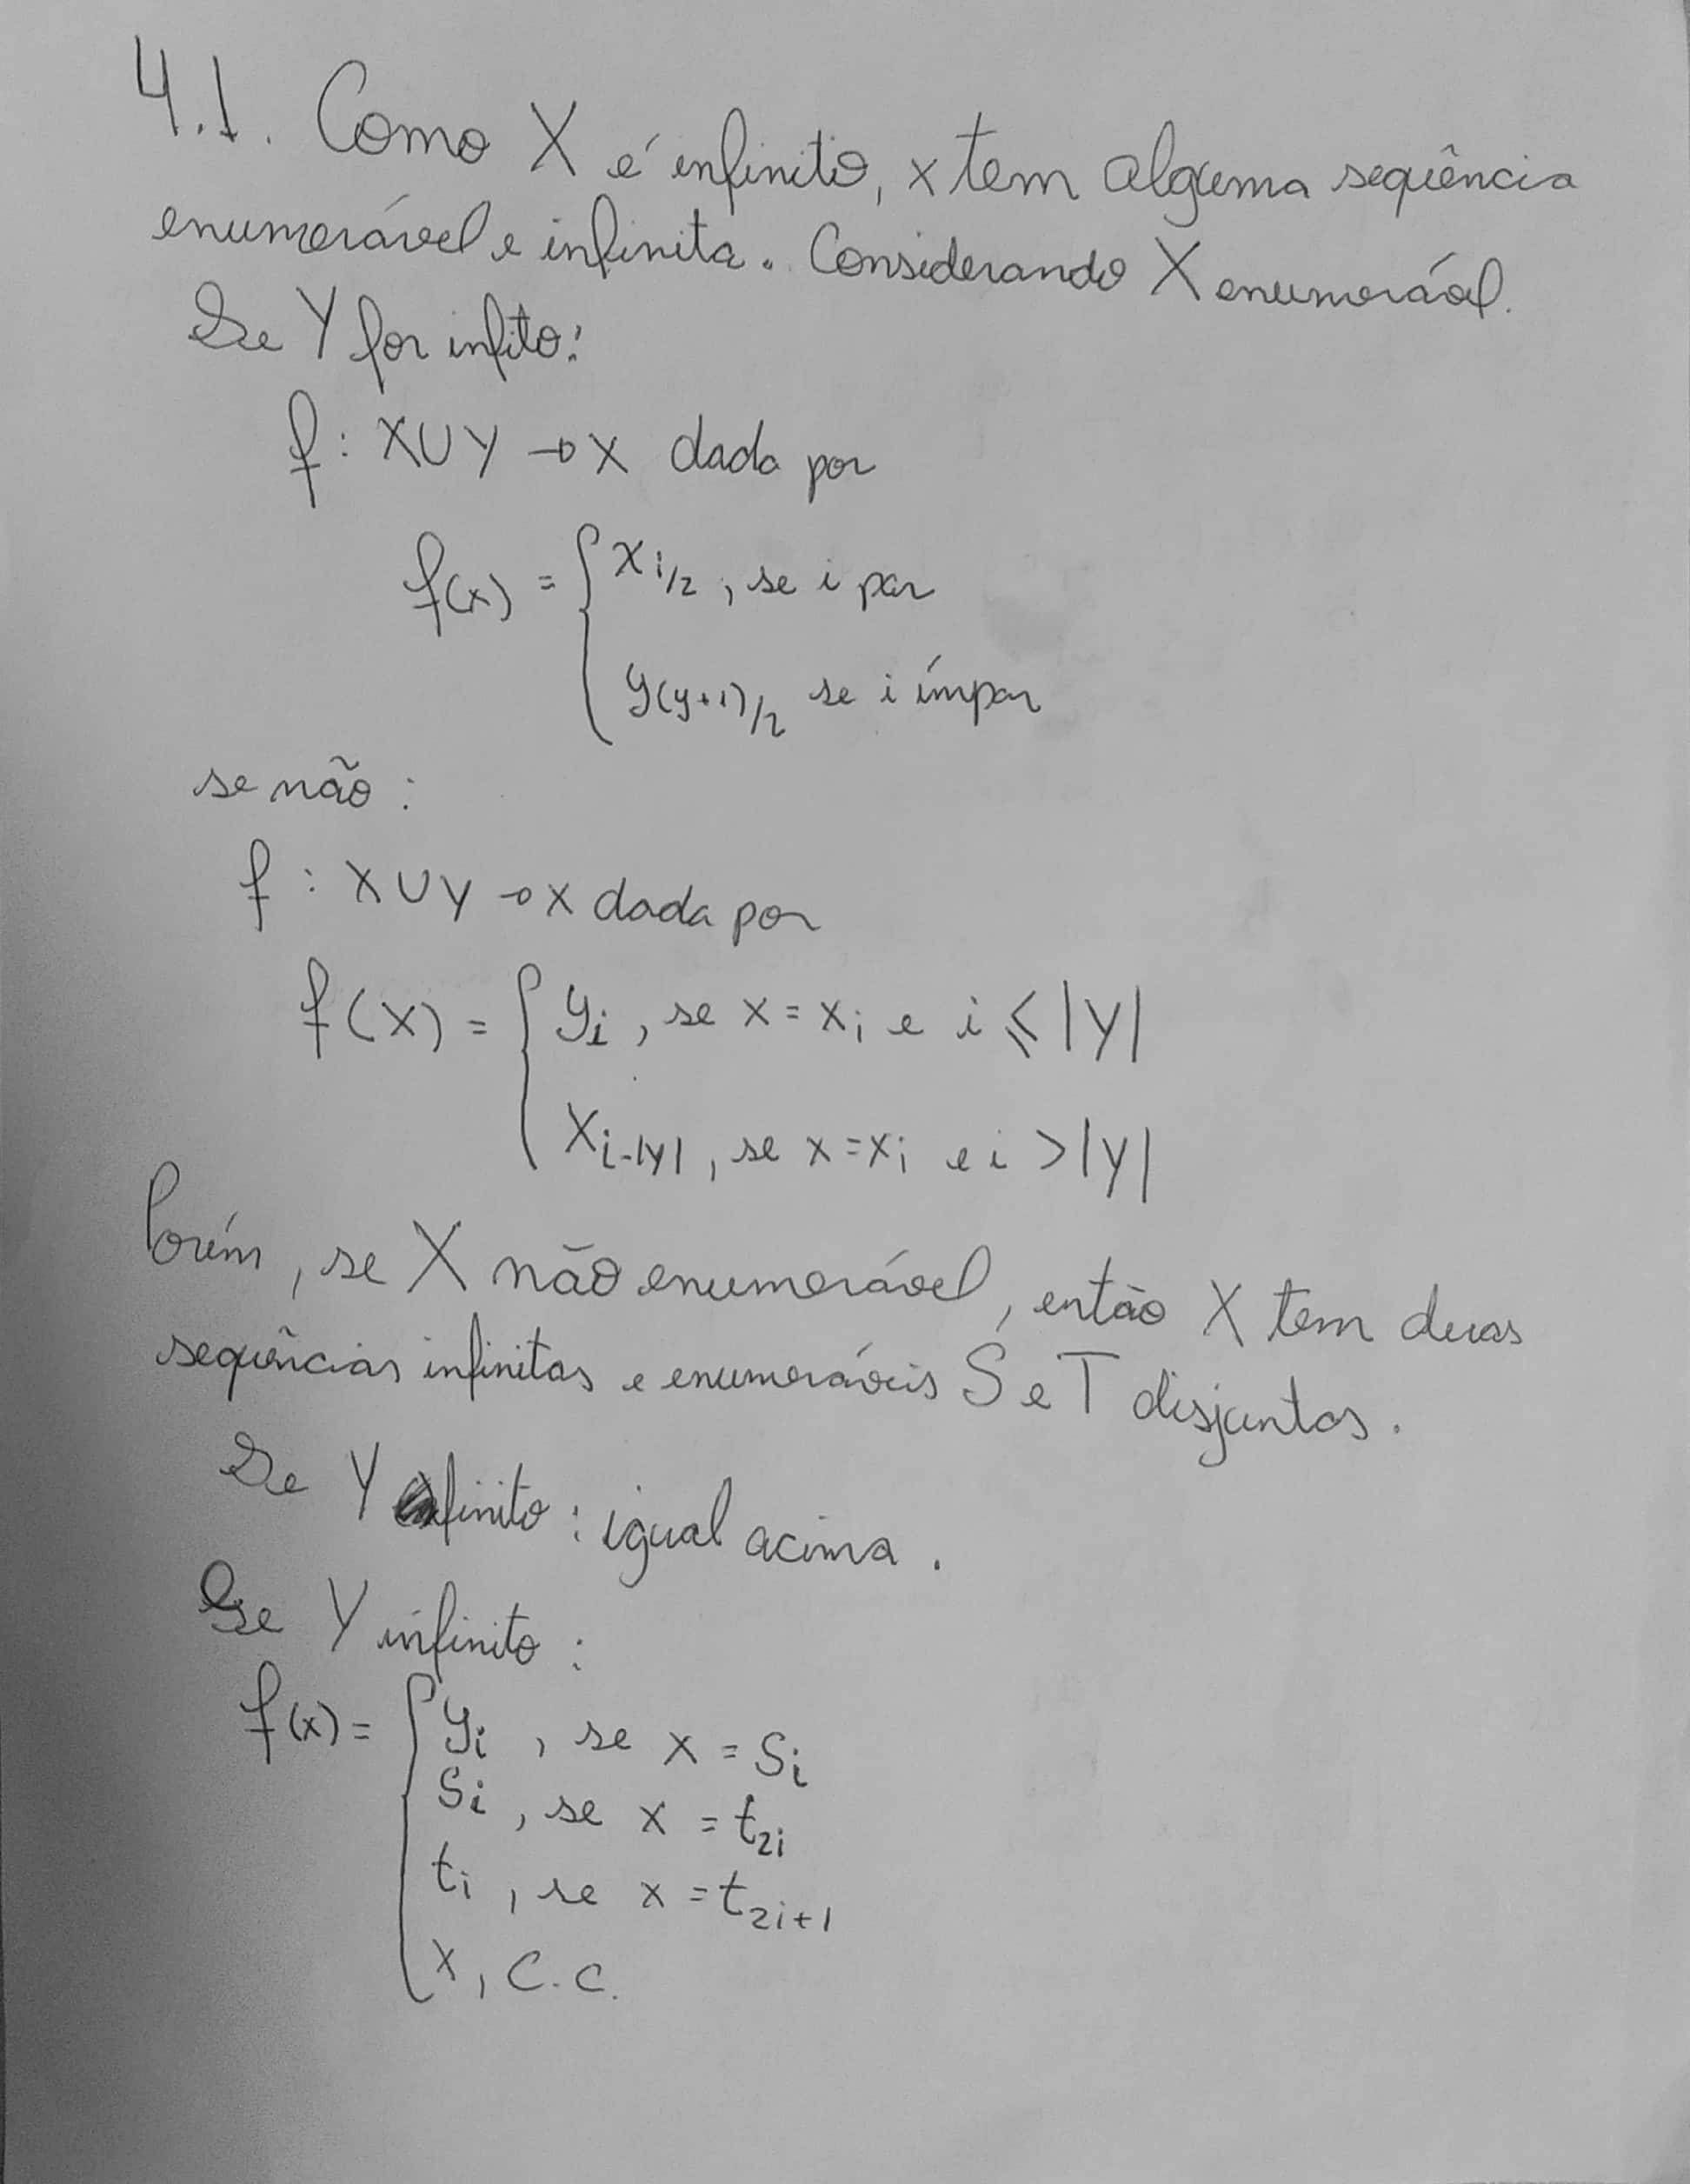 4.1. Como X é infinito, x tem alguma sequência
enumerável e infinita. Considerando X enumerável.
Se Y for infito:
f : X ∪ Y → X dada por
f(x) = { x_{i/2}, se i par
y_{(y+1)/2} se i ímpar
se não :
f : X ∪ Y → X dada por
f(x) = { y_i, se x = x_i e i ⩽ |Y|
x_{i-|Y|}, se x = x_i e i > |Y|
Porém, se X não enumerável, então X tem duas
sequências infinitas e enumeráveis S e T disjuntas.
Se Y finito : igual acima.
Se Y infinito :
f(x) = { y_i, se x = s_i
s_i, se x = t_{2i}
t_i, se x = t_{2i+1}
x, c.c.